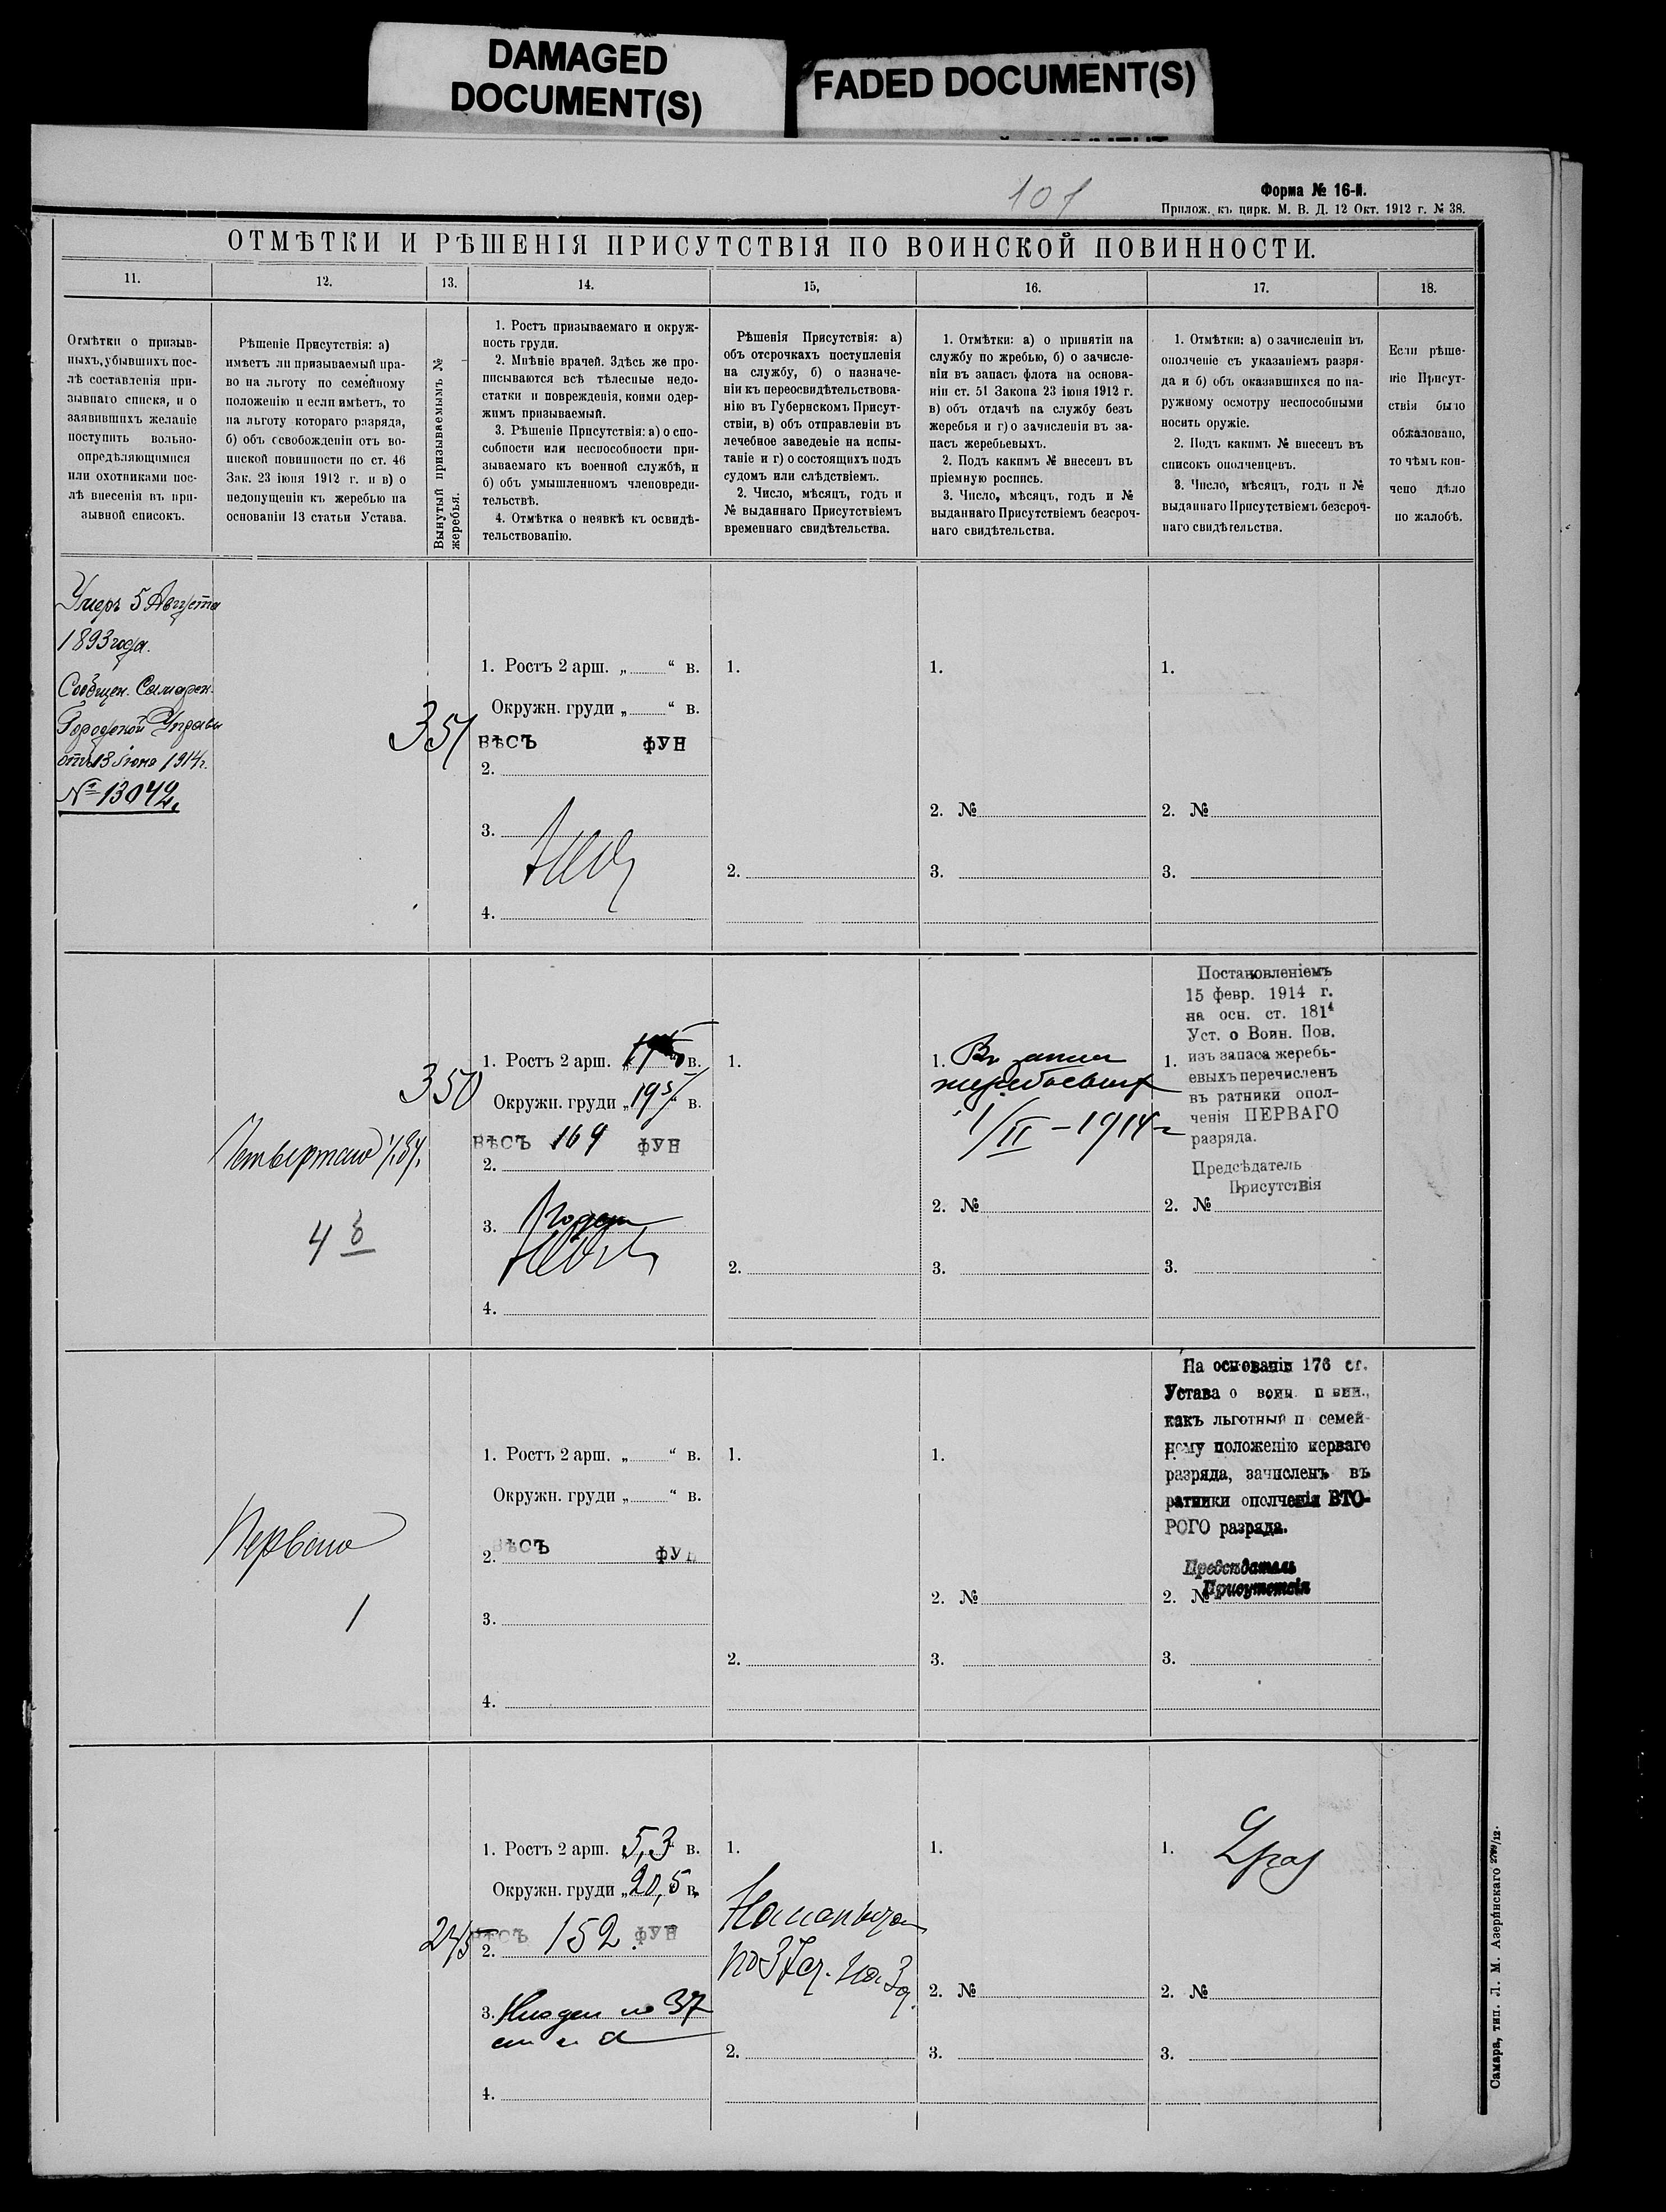 DAMAGED
DOCUMENT(S)
FADED DOCUMENT(S)
101
Форма № 16-й.
Прилож. къ цирк. М. В. Д. 12 Окт. 1912 г. № 38.
ОТМѢТКИ И РѢШЕНІЯ ПРИСУТСТВІЯ ПО ВОИНСКОЙ ПОВИННОСТИ.
11.
12.
13.
14.
15,
16.
17.
18.
Отмѣтки о призыв-
ныхъ, убывшихъ пос-
лѣ составленія при-
зывнаго списка, и о
заявившихъ желаніе
поступить вольно-
опредѣляющимися
или охотниками пос-
лѣ внесенія въ при-
зывной списокъ.
Рѣшеніе Присутствія: а)
имѣетъ ли призываемый пра-
во на льготу по семейному
положенію и если имѣетъ, то
на льготу котораго разряда,
б) объ освобожденіи отъ во-
инской повинности по ст. 46
Зак. 23 іюня 1912 г. и в) о
недопущеніи къ жеребью на
основаніи 13 статьи Устава.
Вынутый призываемымъ №
жеребья.
1. Ростъ призываемаго и окруж-
ность груди.
2. Мнѣніе врачей. Здѣсь же про-
писываются всѣ тѣлесные недо-
статки и поврежденія, коими одер-
жимъ призываемый.
3. Рѣшеніе Присутствія: а) о спо-
собности или неспособности при-
зываемаго къ военной службѣ, и
б) объ умышленномъ членовреди-
тельствѣ.
4. Отмѣтка о неявкѣ къ освидѣ-
тельствованію.
Рѣшенія Присутствія: а)
объ отсрочкахъ поступленія
на службу, б) о назначе-
ніи къ переосвидѣтельствова-
нію въ Губернскомъ Присут-
ствіи, в) объ отправленіи въ
лечебное заведеніе на испы-
таніе и г) о состоящихъ подъ
судомъ или слѣдствіемъ.
2. Число, мѣсяцъ, годъ и
№ выданнаго Присутствіемъ
временнаго свидѣтельства.
1. Отмѣтки: а) о принятіи на
службу по жребью, б) о зачисле-
ніи въ запасъ флота на основа-
ніи ст. 51 Закона 23 іюня 1912 г.
в) объ отдачѣ на службу безъ
жеребья и г) о зачисленіи въ за-
пасъ жеребьевыхъ.
2. Подъ какимъ № внесенъ въ
пріемную роспись.
3. Число, мѣсяцъ, годъ и №
выданнаго Присутствіемъ безсроч-
наго свидѣтельства.
1. Отмѣтки: а) о зачисленіи въ
ополченіе съ указаніемъ разря-
да и б) объ оказавшихся по на-
ружному осмотру неспособными
носить оружіе.
2. Подъ какимъ № внесенъ въ
списокъ ополченцевъ.
3. Число, мѣсяцъ, годъ и №
выданнаго Присутствіемъ безсроч-
наго свидѣтельства.
Если рѣше-
ніе Присут-
ствія было
обжаловано,
то чѣмъ кон-
чено дѣло
по жалобѣ.
Умеръ 5 Августа
1893 года.
Сообщен. Самарск.
Городской Управы
отъ 13 іюня 1914 г.
№ 13042.
351
1. Ростъ 2 арш. „ “ в.
Окружн. груди „ “ в.
вѣсъ фун
2.
3.
4.
1.
2.
1.
2. №
3.
1.
2. №
3.
Четвертаго
4
350
1. Ростъ 2 арш. в.
Окружн. груди „ 19 “ в.
вѣсъ 169 фун
2.
3. Годенъ
4.
1.
2.
1. Въ запасъ
жеребьевыхъ
1/II – 1914 г
2. №
3.
Постановленіемъ
15 февр. 1914 г.
на осн. ст. 181⁴
Уст. о Воин. Пов.
1. изъ запаса жеребь-
евыхъ перечисленъ
въ ратники опол-
ченія ПЕРВАГО
разряда.
Предсѣдатель
Присутствія
2. №
3.
Перваго
1
1. Ростъ 2 арш. „ “ в.
Окружн. груди „ “ в.
вѣсъ фун
2.
3.
4.
1.
2.
1.
2. №
3.
На основаніи 176 ст.
Устава о воин. п вин.,
какъ льготный п семей-
ному положенію перваго
разряда, зачисленъ въ
ратники ополченія ВТО-
РОГО разряда.
Предсѣдатель
Присутствія
2. №
3.
245
1. Ростъ 2 арш. 5,3 в.
Окружн. груди „20,5 в.
вѣсъ 152. фун
2.
3. по 37
4.
1.
по 37 ст.
2.
1.
2. №
3.
1.
2. №
3.
Самара, тип. Л. М. Азеринскаго